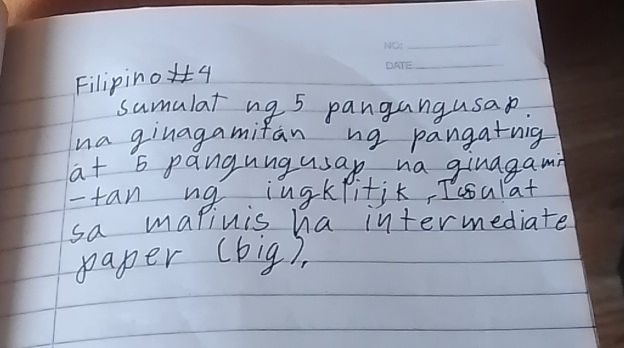 NO:
DATE
Filipino #4
Sumulat ng 5 pangungusap
na ginagamitan ng pangatnig
at 5 pangungusap na ginagami
-tan ng ingklitik, Isulat
sa malinis na intermediate
paper (big).